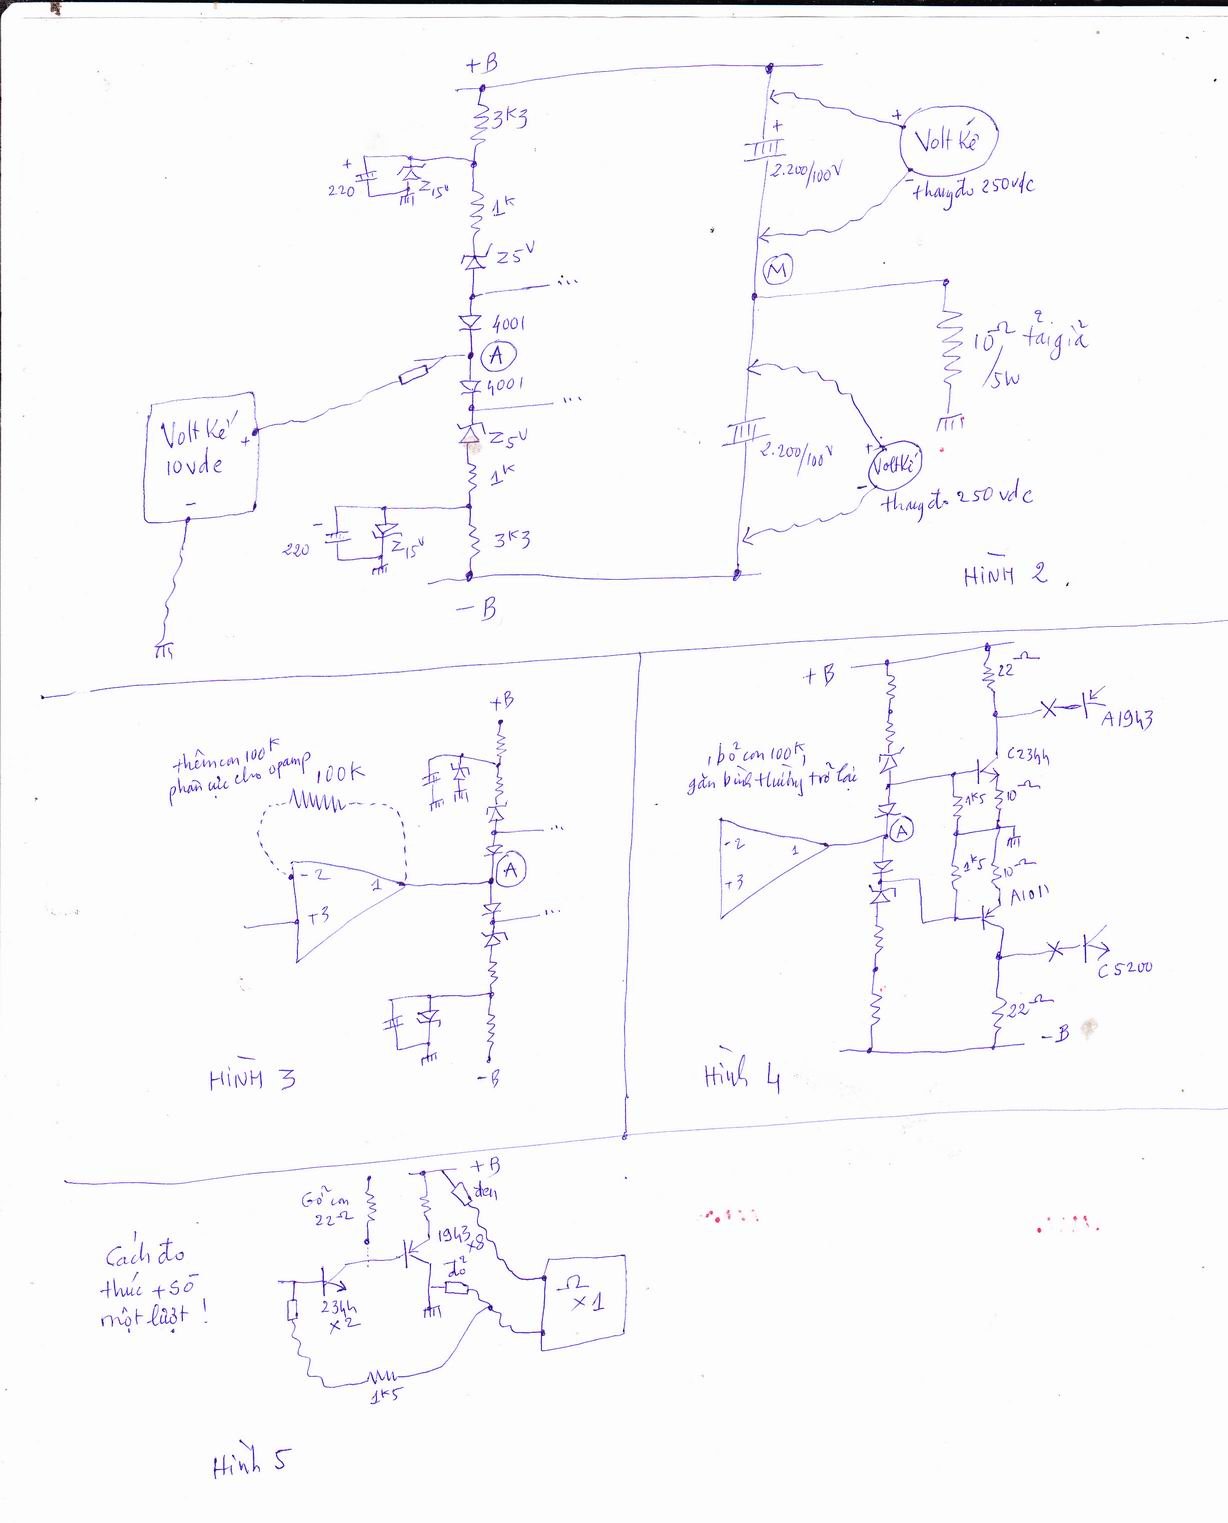 +B
3K3
+
220
Z15V
1K
Z5V
...
4001
A
4001
...
Z5V
1K
-
220
Z15V
3K3
-B
Volt Kế
+
10vdc
-
+
2.200/100V
M
2.200/100V
+
Volt Kế
-
thang đo 250vdc
10Ω tải giả
/5W
+
Volt Kế
-
thang đo 250vdc
HÌNH 2.
thêm con 100K
phân cực cho opamp
100K
- 2
1
+3
+B
...
A
...
-B
HÌNH 3
+B
22Ω
A1943
bỏ con 100K,
gắn bình thường trở lại
C2344
1K5
10Ω
- 2
1
+3
A
1K5
10Ω
A1011
C5200
22Ω
-B
Hình 4
Cách đo
thúc + sò
một lượt !
Gỡ con
22Ω
+B
đen
1943
x8
đỏ
2344
x2
1K5
Ω
x1
Hình 5